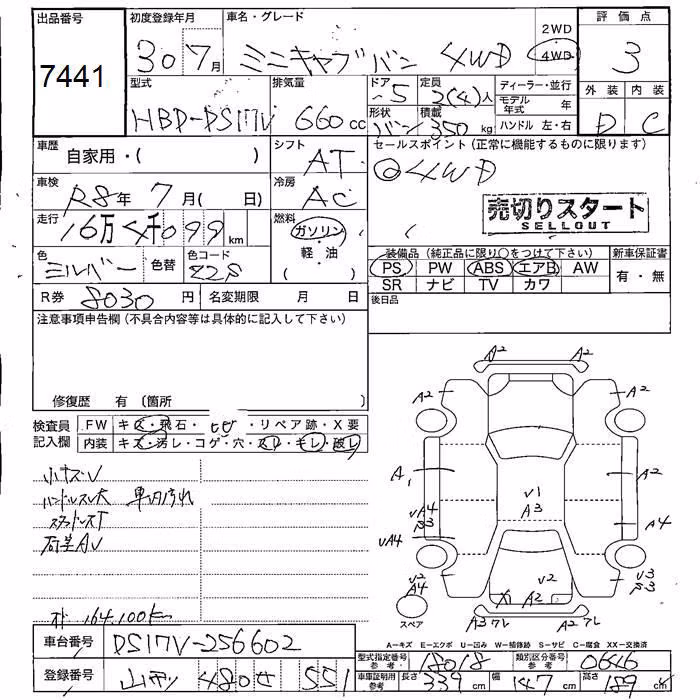 出品番号 初度登録年月 車名・グレード 2WD 評価点
7441 30 7月 ミニキャブバン 4WD 4WD 3
型式 排気量 ドア 定員 ディーラー・並行 外装 内装
HBD-DS17V 660cc 5 2(4)人 モデル年式 年 D C
形状 積載
バン 350kg ハンドル 左・右
車歴 自家用・( ) シフト AT セールスポイント(正常に機能するものに限ります)
◎4WD
車検 R8年 7月( 日) 冷房 AC
売切りスタート
SELLOUT
走行 16万4千099km 燃料 ガソリン
軽・油
( )
色 シルバー 色替 色コード
装備品(純正品に限り○をつけて下さい) 新車保証書
PS PW ABS エアB AW 有・無
SR ナビ TV カワ
R券 8030円 名変期限 月 日 後日品
注意事項申告欄(不具合内容等は具体的に記入して下さい)
修復歴 有(箇所
検査員 FW キズ・飛石・ ヒビ ・リペア跡・X要
記入欄 内装 キズ・汚レ・コゲ・穴・スレ・キレ・破レ
小キズV
ハンドルスレ大 車内汚れ
スタッドレスT
荷台AV
オド 164,100km
A2 A2
A2 A2
A1 A2
V1
A3
VA4
B3 A4
VA4
V2
A4 V2 V3
B3
X1 A2
スペア A3ワレ A2ワレ
A-キズ E-エクボ U-凹み W-補修跡 S-サビ C-腐食 XX-交換済
車台番号 DS17V-256602 型式指定番号 参考 18018 類別区分番号 参考 0646
登録番号 480せ551 車庫証明用 参考 長さ 339cm 幅 147cm 高さ 189cm